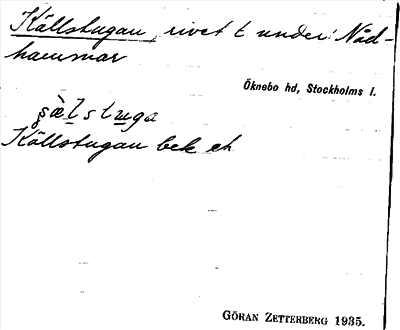 Källstugan, rivet t under: Nåd-
hammar
Öknebo hd, Stockholms l.
Källstugan bek eh
GÖRAN ZETTERBERG 1935.